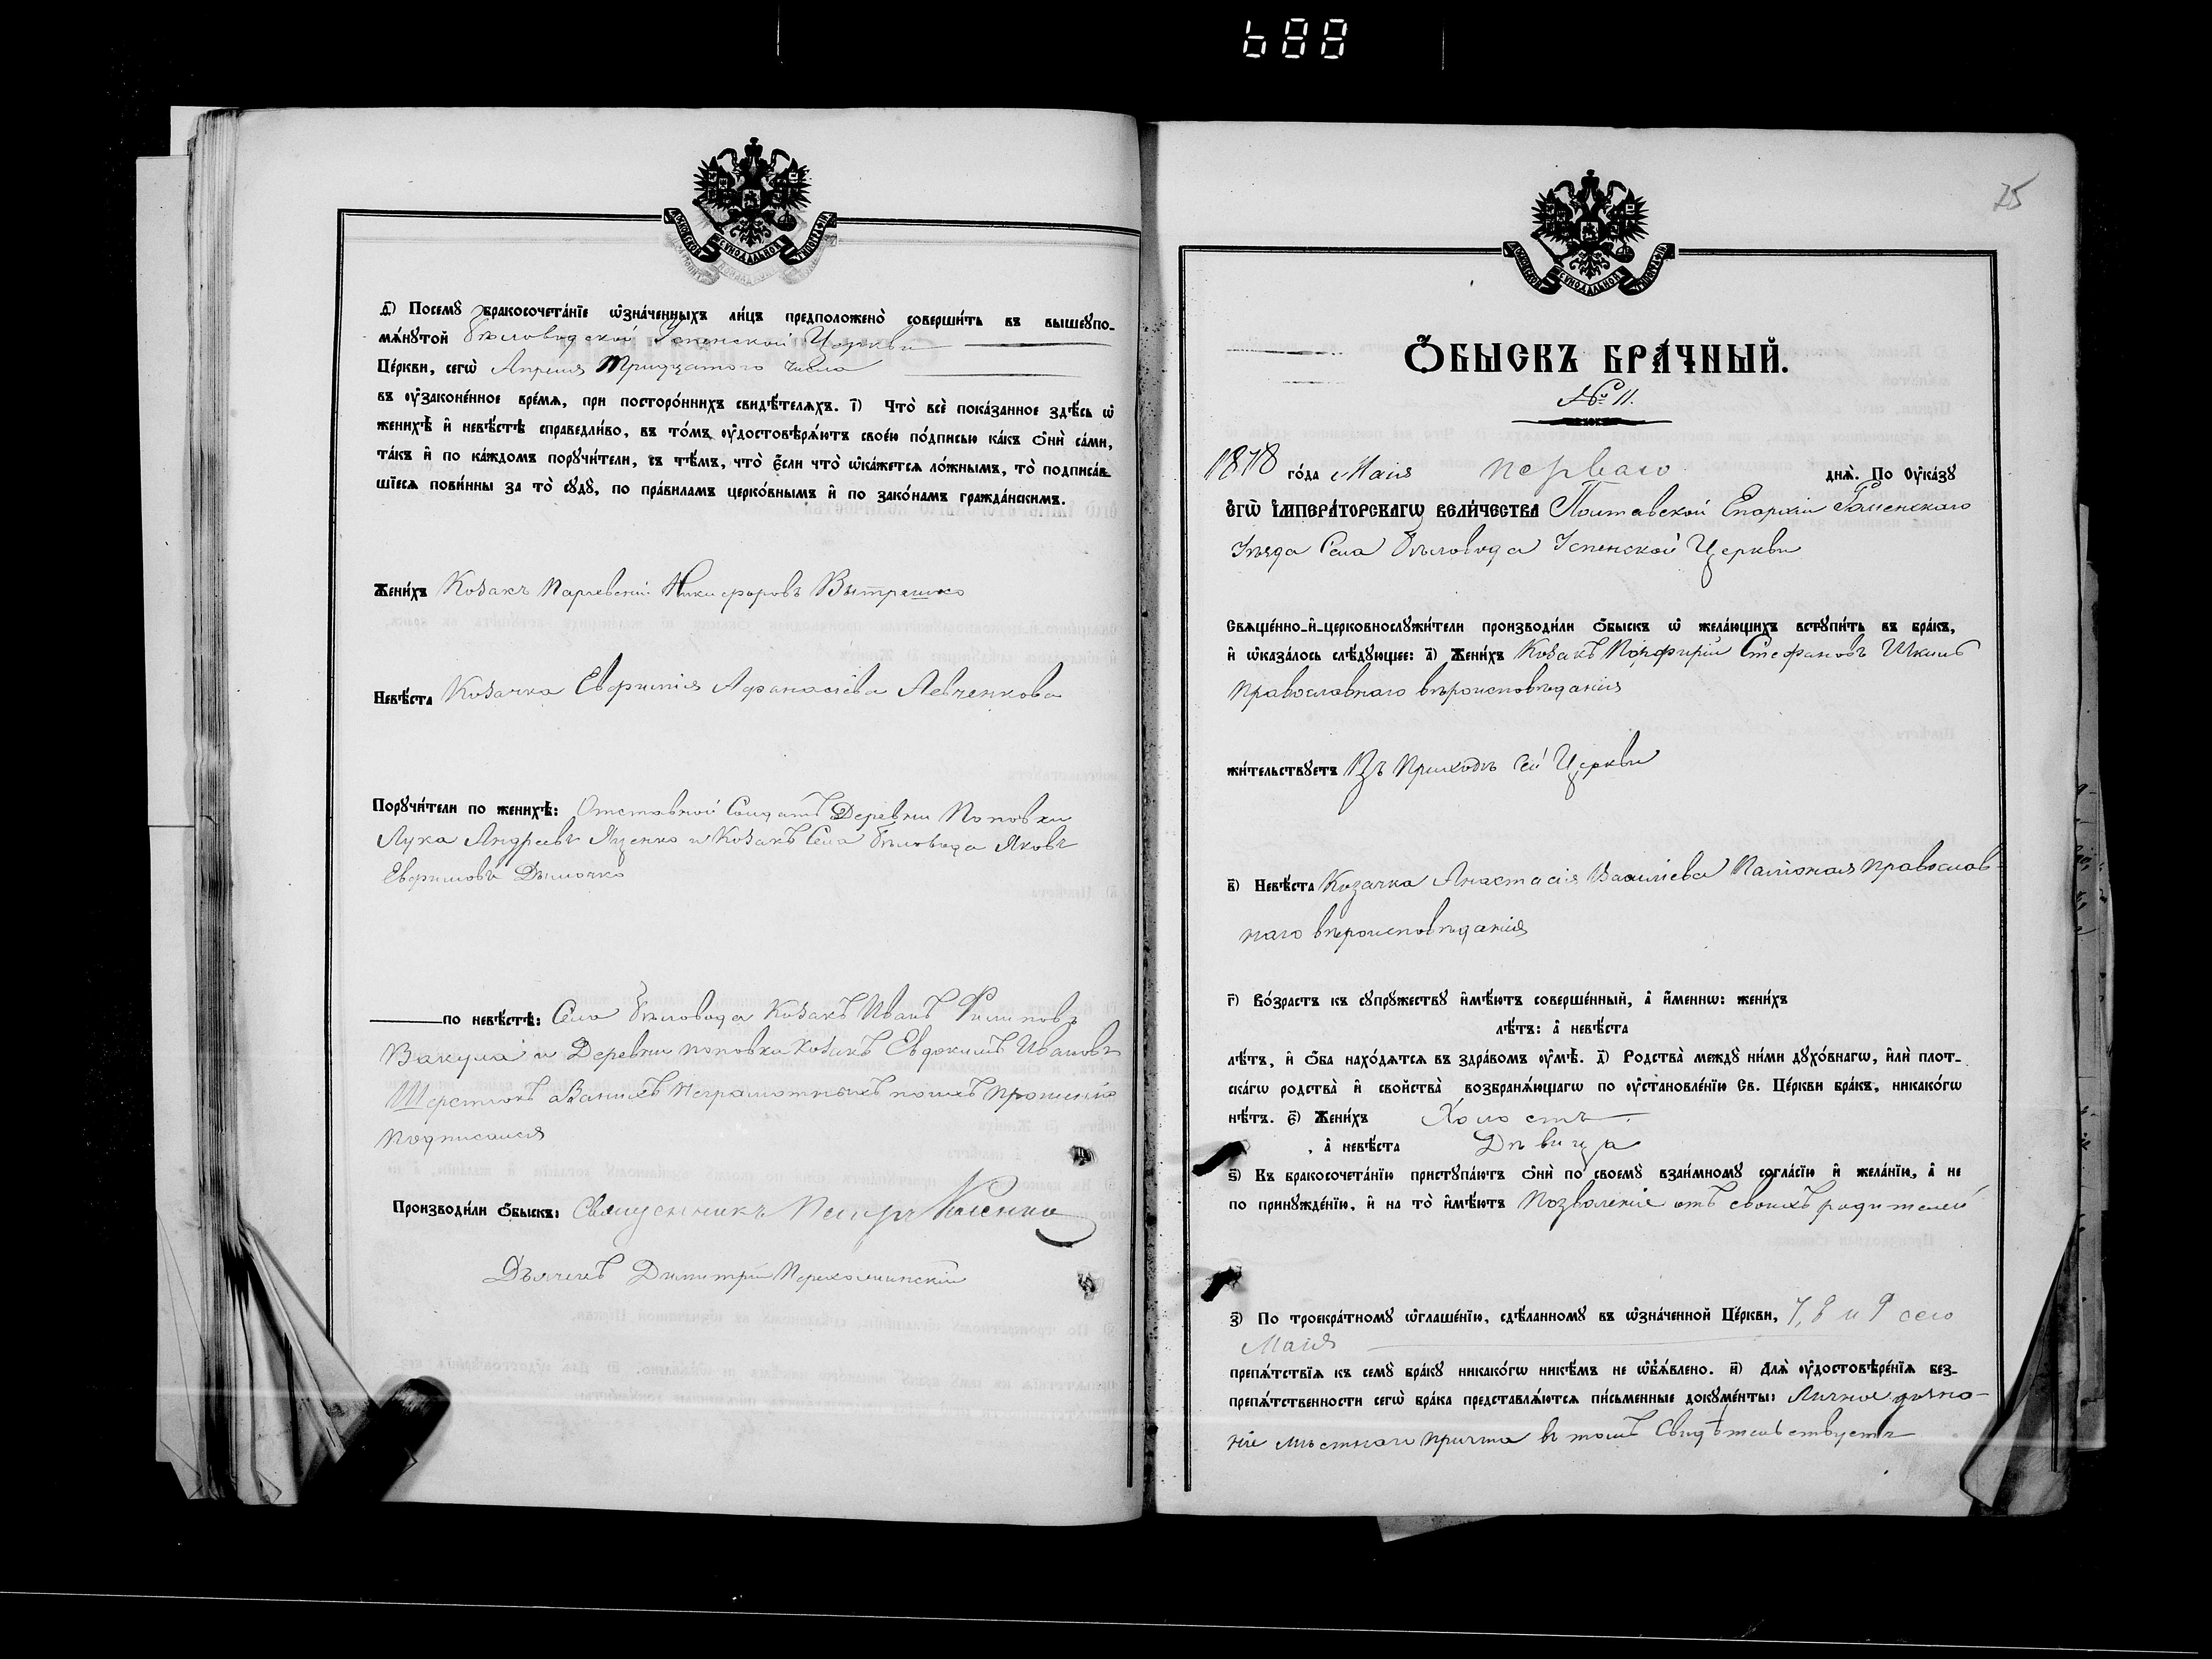 688
МОСКОВСКОЙ СѴНОДАЛЬНОЙ ТИПОГРАФІИ
д҃і) Посемꙋ бракосочета́нїе ѡ҆зна́ченныхъ ли́цъ предположено̀ соверши́ть въ вышеꙋпо-
мѧ́нꙋтой Бѣловодской Успенской Церкви
Це́ркви, сегѡ̀ Апреля Тридцатого числа
въ ᲂу҆законе́нное вре́мѧ, при посторо́ннихъ свидѣ́телѧхъ. і҃) Что̀ всѐ пока́занное здѣ́сь ѡ҆
женихѣ̀ и҆ невѣ́стѣ справедли́во, въ то́мъ ᲂу҆достовѣрѧ́ютъ свое́ю по́дписью ка́къ ѻ҆нѝ са́ми,
та́къ и҆ по ка́ждомъ порꙋчи́тели, съ тѣ́мъ, что̀ є҆́сли что̀ ѡ҆ка́жетсѧ ло́жнымъ, то̀ подписа́в-
шїесѧ пови́нны за то̀ сꙋдꙋ̀, по пра́виламъ церко́внымъ и҆ по зако́намъ гражда́нскимъ.
Жени́хъ Козакъ Никифоровъ Вытришко
Невѣ́ста Козачка Евфимія Афанасіева Левченкова
Порꙋчи́тели по женихѣ̀: Отставной Солдатъ Деревни Поповки
Лука Андреевъ Яценко и Козакъ Села Бѣловода Яковъ
Евфимовъ Дымочко
по невѣ́стѣ: Села Бѣловода Козакъ Иванъ Филиповъ
Вакула и Деревни Поповки Козакъ Евдокимъ Ивановъ
неграмотныхъ
подписался
Производи́ли ѻ҆́быскъ: Священникъ Петръ
Дьячекъ Димитрій
75
МОСКОВСКОЙ СѴНОДАЛЬНОЙ ТИПОГРАФІИ
Ѻ҆́БЫСКЪ БРА́ЧНЫЙ.
№ 11.
1878 го́да Маія перваго днѧ̀. По Оу҆ка́зꙋ
Є҆гѡ̀ І҆мпера́торскагѡ Вели́чества Полтавской Епархіи Роменскаго
Уезда Села Бѣловода Успенской Церкви
Свѧще́нно-и҆-церковнослꙋжи́тели производи́ли ѻ҆́быскъ ѡ҆ жела́ющихъ встꙋпи́ть въ бра́къ,
и҆ ѡ҆каза́лось слѣ́дꙋющее: а҃) Жени́хъ Козакъ Порфирій Стефановъ Шкиль
православнаго вѣроисповѣданія
жи́тельствꙋетъ Въ приходѣ сей Церкви
в҃) Невѣ́ста Козачка Анастасія Василіева православ
наго вѣроисповѣданія
г҃) Во́зрастъ къ сꙋпрꙋ́жествꙋ и҆мѣ́ютъ соверше́нный, а҆ и҆́меннѡ: жени́хъ
лѣ́тъ: а҆ невѣ́ста
лѣ́тъ, и҆ ѻ҆́ба нахо́дѧтсѧ въ здра́вомъ ᲂу҆мѣ̀. д҃) Родства̀ междꙋ̀ ни́ми дꙋхо́внагѡ, и҆лѝ плот-
скагѡ родства̀ и҆ сво́йства̀ возбранѧ́ющагѡ по ᲂу҆становле́нїю Св. Це́ркви бра́къ, никако́гѡ
нѣ́тъ. є҃) Жени́хъ Холостъ
, а҆ невѣ́ста Дѣвица
ѕ҃) Къ бракосочета́нїю пристꙋпа́ютъ ѻ҆нѝ по своемꙋ̀ взаи́мномꙋ согла́сїю и҆ жела́нїю, а҆ не
по принꙋжде́нїю, и҆ на то̀ и҆мѣ́ютъ Позволеніе отъ своихъ родителей
з҃) По троекра́тномꙋ ѡ҆глаше́нїю, сдѣ́ланномꙋ въ ѡ҆зна́ченной Це́ркви, 7, 8 и 9 сего
Маія
препѧ́тствїѧ къ семꙋ̀ бра́кꙋ никако́гѡ никѣ́мъ не ѡ҆б̾ѧ́влено. и҃) Длѧ̀ ᲂу҆достовѣре́нїѧ без-
препѧ́тственности сегѡ̀ бра́ка представлѧ́ютсѧ пи́сьменные докꙋме́нты: Личное дозна-
ніе мѣстнаго причта въ томъ Свидѣтельствуетъ